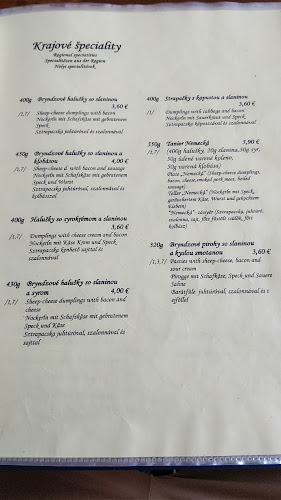 Krajové špeciality
Regional specialities
Spezialitäten aus der Region
Helyi specialitások
400g Bryndzové halušky so slaninou
3,60 €
/1,7/ Sheep cheese dumplings with bacon
Nockerln mit Schafskäse mit gebratenem
Speck
Sztrapacska juhtúróval és szalonnával
450g Bryndzové halušky so slaninou a
klobásou
4,00 €
/1,7/ Sheep cheese d. with bacon and sausage
Nockerln mit Schafskäse mit gebratenem
Speck und Wurst
Sztrapacska juhtúróval, szalonnával és
kolbásszal
400g Halušky so syrokrémom a slaninou
3,60 €
/1,7/ Dumplings with cheese cream and bacon
Nockerln mit Käse Krem und Speck
Sztrapacska kenhető sajttal és
szalonnával
430g Bryndzové halušky so slaninou
a syrom
4,00 €
/1,7/ Sheep cheese dumplings with bacon and
cheese
Nockerln mit Schafskäse mit gebratenem
Speck und Käse
Sztrapacska juhtúróval, szalonnával és
sajttal
400g Strapačky s kapustou a slaninou
3,60 €
/1/ Dumplings with cabbage and bacon
Nockerln mit Sauerkraut und Speck
Sztrapacska káposztával és szalonnával
350g Tanier Nemecká
3,90 €
/1,7/ (600g halušky, 20g slanina, 30g syr,
50g údené varené koleno,
50g varená klobása)
Plate „Nemecká" (Sheep cheese dumplings,
bacon, cheese, smoked pork meat, boiled
sausage)
Teller „Nemecká" (Nockerln mit Speck,
geräuchertem Käse, Wurst und gekochtem
Eisbein)
"Nemecká" - tányér (Sztrapacska, juhtúró,
szalonna, sajt, főtt füstölt csülök, főtt
kolbász)
320g Bryndzové pirohy so slaninou
a kyslou smotanou
3,60 €
/1,3,7/ Pasties with sheep cheese, bacon and
sour cream
Pirogge mit Schafskäse, Speck und Sauere
Sahne
Barátfüle juhtúróval, szalonnával és t
ejföllel